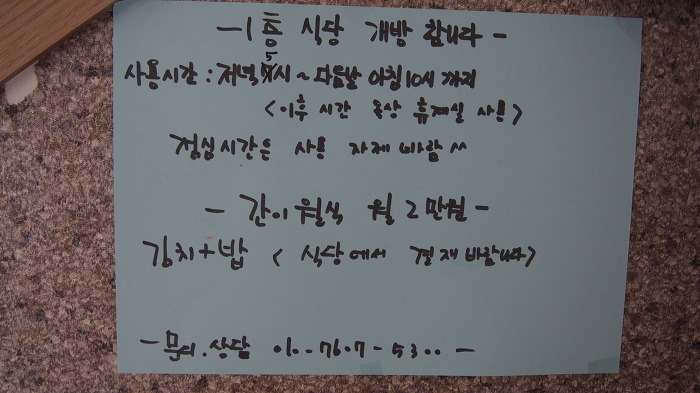 -1층 식당 개방 합니다-
사용시간 : 저녁 5시 ~ 다음날 아침 10시 까지
<이후 시간 옥상 휴게실 사용>
점심시간은 사용 자제 바람 ^^
- 간이 월식 월 2만원 -
김치+밥 < 식당에서 결재바랍니다>
- 문의.상담 010-7607-5300 -